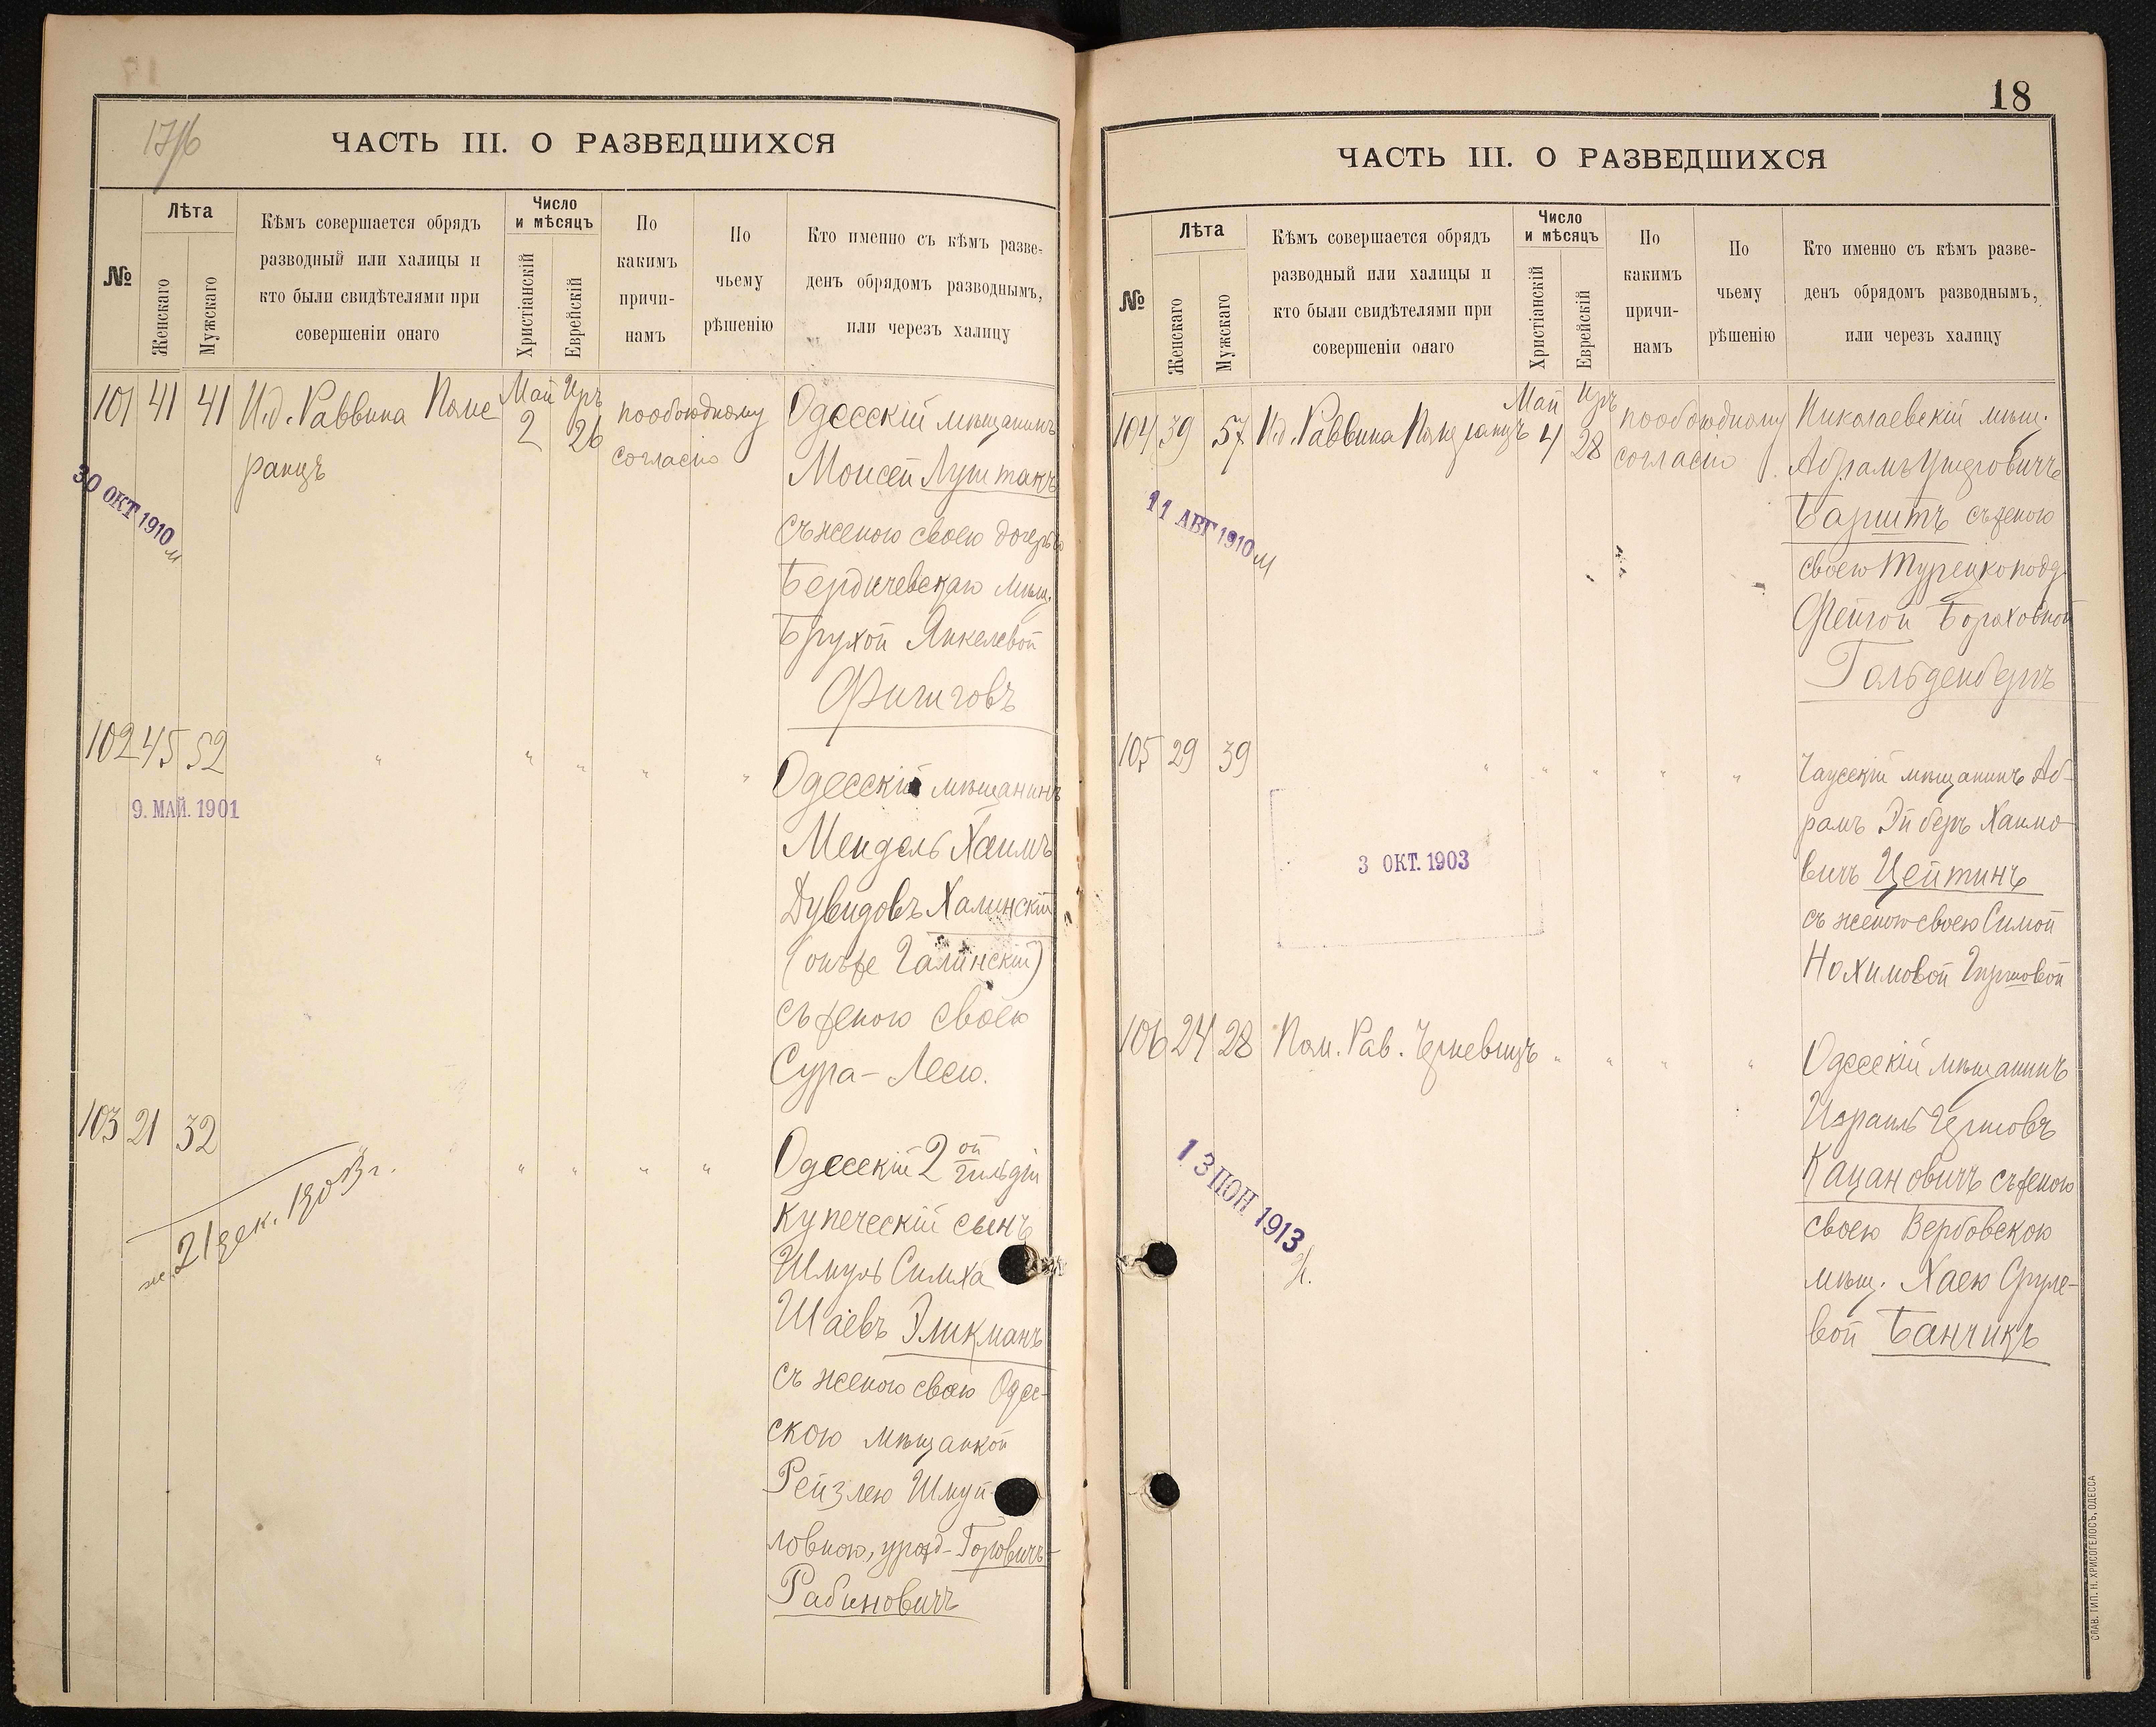 17/6
ЧАСТЬ III. О РАЗВЕДШИХСЯ
№
Лѣта
Женскаго
Мужскаго
Кѣмъ совершается обрядъ
разводный или халицы и
кто были свидѣтелями при
совершеніи онаго
Число
и мѣсяцъ
Христіанскій
Еврейскій
По
какимъ
причи-
намъ
По
чьему
рѣшенію
Кто именно съ кѣмъ разве-
денъ обрядомъ разводнымъ,
или черезъ халицу
101 41 41 И.д. Раввина Поме
ранцъ
Май
2
Иръ
26
пообоюдному
согласію
Одесскій мѣщанинъ
Моисей Луштакъ
съ женою своею дочерью
Бердичевскаго мѣщ.
Брухой Янкелевой
30 ОКТ 1910
102 45 52 " " " " "
9. МАЙ. 1901
Одесскій мѣщанинъ
Мендель Хаимъ
Дувидовъ Халинскій
(онъ же Галинскій)
съ женою своею
Сура-Леею.
103 21 32 " " " " "
21 дек. 1903 г.
Одесскій 2 ой гильдіи
купеческій сынъ
Шмуль Симха
Шаевъ Эликманъ
съ женою своею Одес-
скою мѣщанкой
Рейзлею Шмуй-
ловною, урожд- Горовичъ-
Рабиновичъ
18
ЧАСТЬ III. О РАЗВЕДШИХСЯ
№
Лѣта
Женскаго
Мужскаго
Кѣмъ совершается обрядъ
разводный или халицы и
кто были свидѣтелями при
совершеніи онаго
Число
и мѣсяцъ
Христіанскій
Еврейскій
По
какимъ
причи-
намъ
По
чьему
рѣшенію
Кто именно съ кѣмъ разве-
денъ обрядомъ разводнымъ,
или черезъ халицу
104 39 57 И.д. Раввина Померанцъ
Май
4
Иръ
28
пообоюдному
согласію
Николаевскій мѣщ.
Абрамъ Ушеровичъ
съ женою
своею Турецкопод.
Фейгой Бораховной
Гольденбергъ
11 АВГ 1910
105 29 39 " " " " "
3 ОКТ. 1903
Чаусскій мѣщанинъ Аб-
рамъ Эйберъ Хаимо-
вичъ Цейтинъ
съ женою своею Симой
Нохимовой Гиршовой
106 24 28 Пом. Рав. " " " "
13 ІЮН 1913
Одесскій мѣщанинъ
Израиль Гершовъ
Кацановичъ съ женою
своею Вербовскою
мѣщ. Хаею Сруле-
вой Банчикъ
СЛАВ. ТИП. Н. ХРИСОГЕЛОСЪ, ОДЕССА